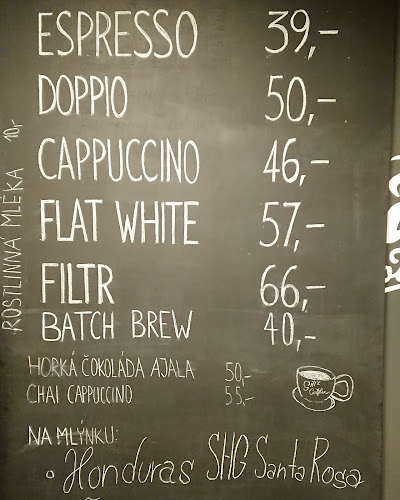 ESPRESSO 39,-
DOPPIO 50,-
CAPPUCCINO 46,-
FLAT WHITE 57,-
FILTR 66,-
BATCH BREW 40,-
HORKÁ ČOKOLÁDA AJALA 50,-
CHAI CAPPUCCINO 55,-
NA MLÝNKU:
Honduras SHG Santa Rosa
ROSTLINNÁ MLÉKA 10,-